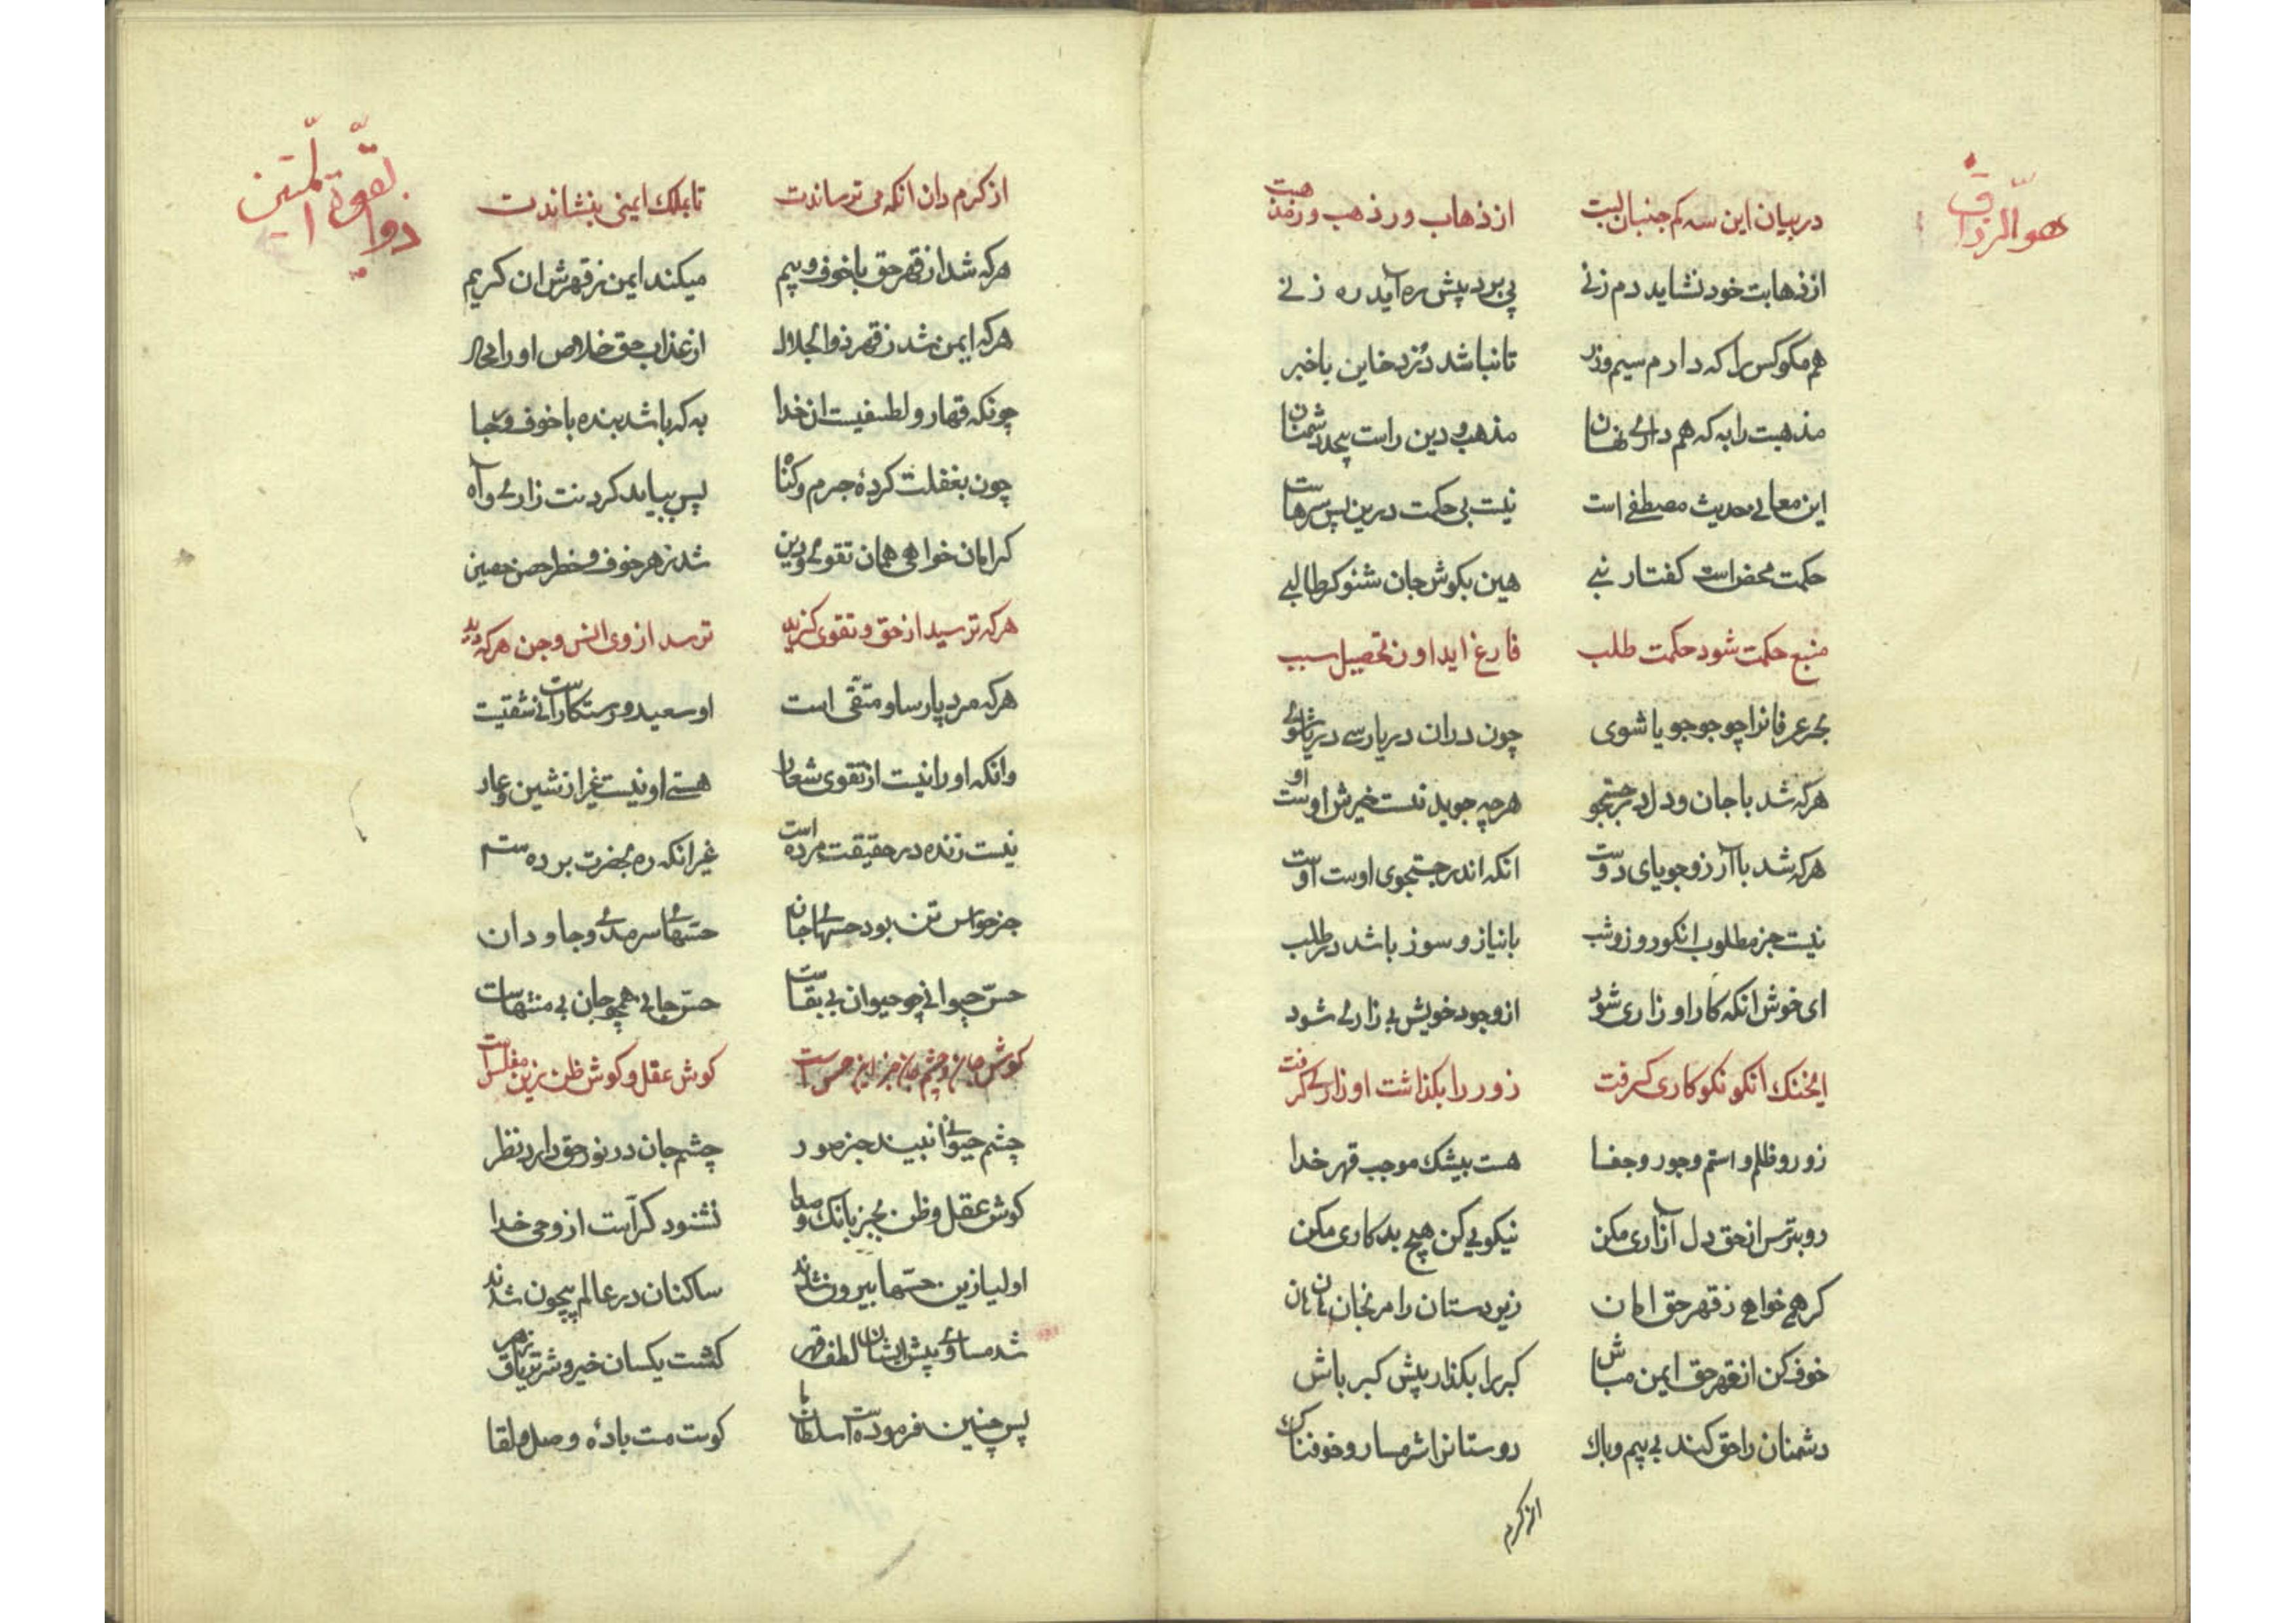 هو الرزاق
در بیان این سه کم جنبان لبت از ذهاب و ز ذهب وز مذهبت
از ذهابت خود نشاید دم زنی پی برد پیش ره آید ره زنی
هم مکو کس را که دارم سیم و زر تا نباشد دزد خاین باخبر
مذهبت را به که هم داری نهان مذهب و دین راست بیحد دشمنان
این معانی حدیث مصطفی است نیست بی حکمت درین پس سرهاست
حکمت محض است کفتار نبی هین بکوش جان شنو کر طالبی
منبع حکمت شود حکمت طلب فارغ اید او ز تحصیل سبب
بحر عرفانرا چو جو جویا شوی چون دران دریا رسی دریا شوی
هرکه شد با جان و دل در جستجو هرچه جوید نیست غیرش اوست او
هرکه شد با آرزو جویای دوست انکه اندر جستجوی اوست اوست
نیست جز مطلوب انکو روز و شب با نیاز و سوز باشد در طلب
ای خوش انکه کار او زاری شود از وجود خویش بی زاری شود
ایخنک انکو نکوکاری کرفت زور را بکذاشت او زاری کرفت
زور و ظلم و استم و جور و جفا هست بیشک موجب قهر خدا
رو بترس از حق دل آزاری مکن نیکویی کن هیچ بدکاری مکن
کر همی خواهی ز قهر حق امان زیردستان را مرنجان هان هان
خوف کن از قهر حق ایمن مباش کبر را بکذار پیش کبر باش
دشمنان را حق کند بی بیم و باک دوستانرا شرمسار و خوفناک
از کرم
ذو القوة المتین
از کرم دان انکه می ترساندت تا بملک ایمنی بنشاندت
هرکه شد از قهر حق با خوف و بیم میکند ایمن ز قهرش ان کریم
هرکه ایمن شد ز قهر ذوالجلال از عذاب حق خلاص او را محال
چونکه قهار و لطیفست ان خدا به که باشد بنده با خوف و رجا
چون بغفلت کردهٔ جرم و کناه پس بباید کردنت زاری و آه
کر امان خواهی همان تقوی و دین شد ز هر خوف و خطر حصن حصین
هرکه ترسید از حق و تقوی کزید ترسد از وی انس و جن هرکه دید
هرکه مرد پارسا و متقی است او سعید و رستکارست نی شقیست
وانکه او را نیست از تقوی شعار هستی او نیست غیر از شین و عار
نیست زنده در حقیقت مرده است غیر انکه ره بحضرت برده ست
جز حواس تن بود حسهای جان حسهایی سرمدی و جاودان
حس حیوانی چو حیوان بی بقاست حس جانی همچو جان بی منتهاست
کوش جان و چشم جان جز این حس است کوش عقل و کوش ظن زین مفلس است
چشم حیوانی نبیند جز صور چشم جان در نور حق دارد نظر
کوش عقل و ظن بجز بانک و صدا نشنود کر آیت از وحی خدا
اولیا زین حسها بیرون شدند ساکنان در عالم بیچون شدند
شد مساوی پیش ایشان لطف و قهر کشت یکسان خیر و شر تریاق و زهر
پس چنین فرموده است سلطان ما کوست مست بادهٔ وصل و لقا